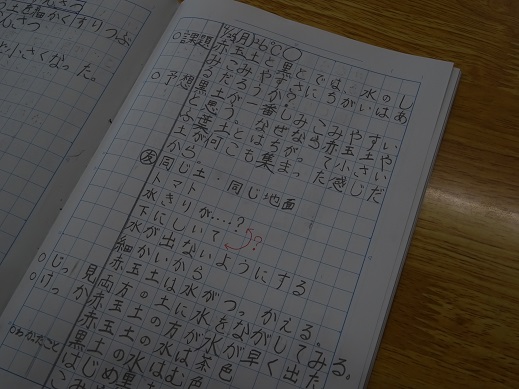 土 かくすりつぶ
と小さくなった。
(月)26℃○
○課題 赤玉土と黒土では、水のし
みこみやすさにちがいはあ
るだろうか。
○予想 黒土が一番しみこみやすい
と思う。なぜなら赤玉土や
ふ葉土とはちがって小さい
土が何こも集まった感じだ
から。
友 同じ土・同じ地面
トマト
水きりが…?
下にしいて ?
水が出ないようにする
細かいから
赤玉土は水がつっかえる。
○じっ見 両方の土に水をながしてみる。
○けっか 赤玉土の方が水が早く出た
赤玉土の水は茶色
黒土の水はむ色
○わかったこと はじめ黒
こみ